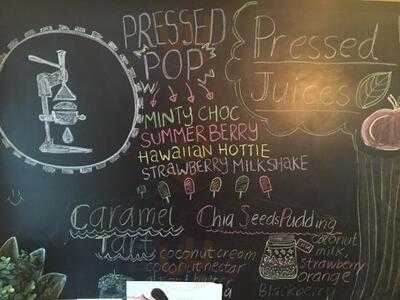 PRESSED
POP
MINTY CHOC
SUMMERBERRY
HAWAIIAN HOTTIE
STRAWBERRY MILKSHAKE
Pressed
Juices
Caramel
Tart
coconut cream
coconut nectar
Chia Seeds Pudding
coconut
milk
strawberry
orange
Blackberry